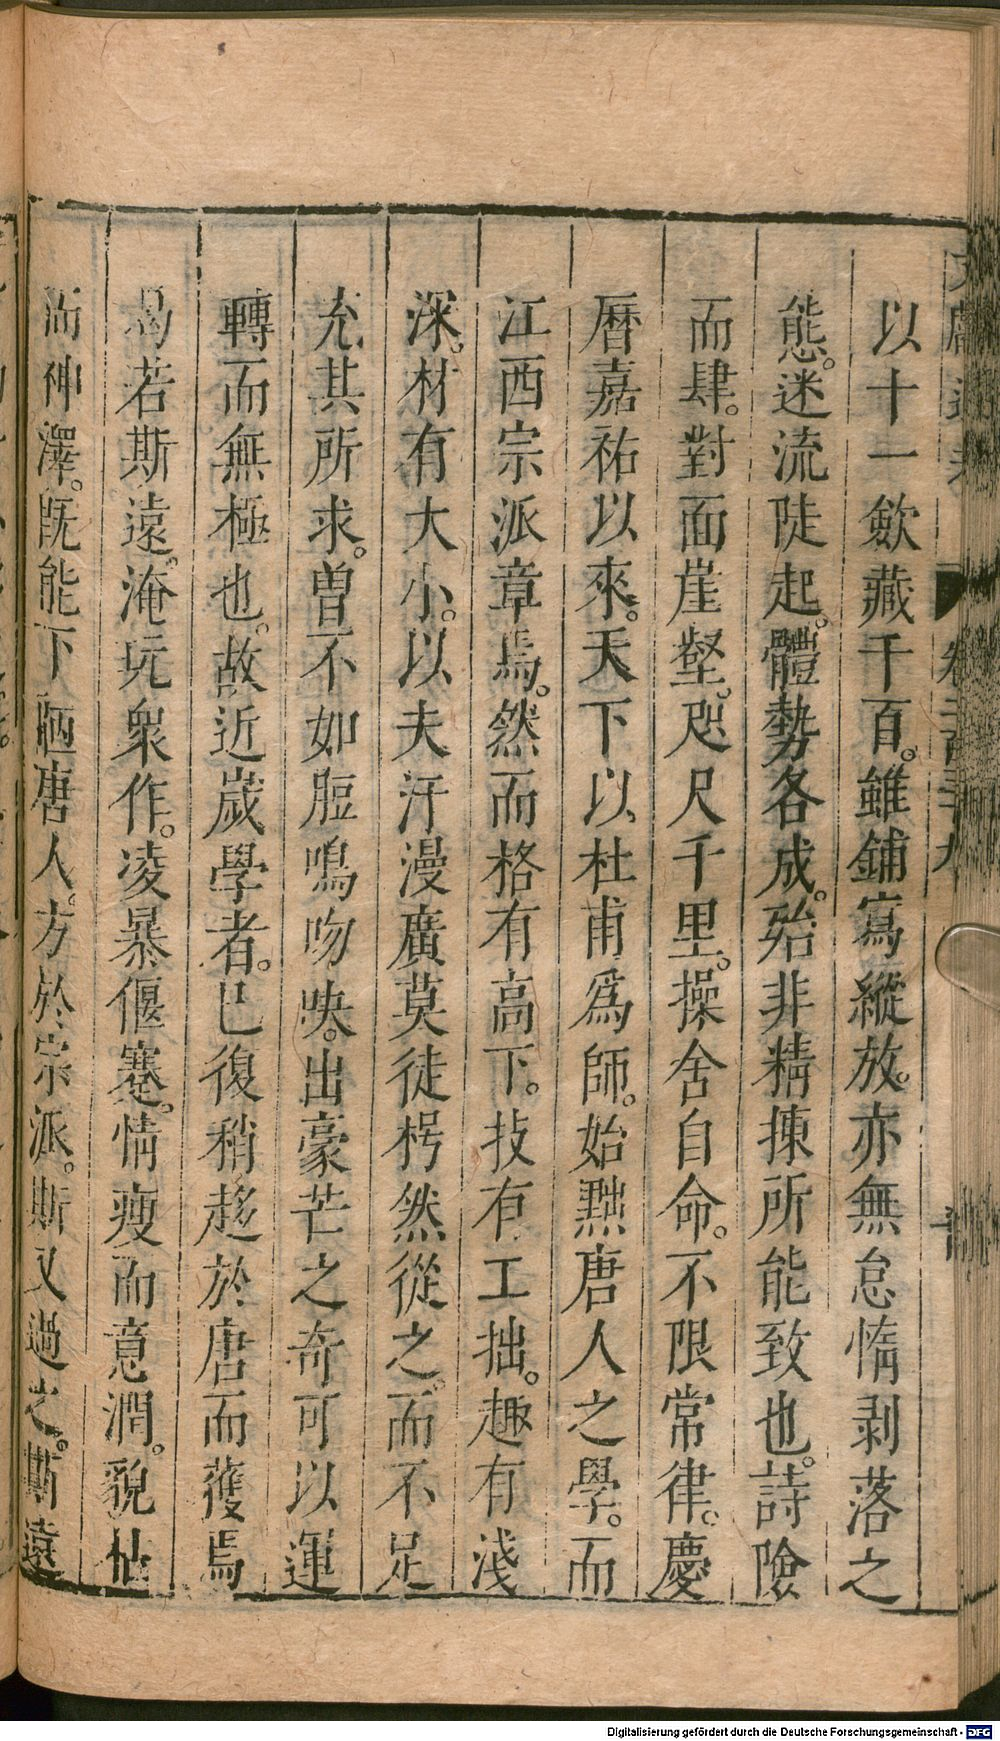 文獻通考 卷二百三十九
以十一斂藏千百。雖鋪寫縱放。亦無怠惰剥落之
態。迷流陡起。體勢各成。殆非精揀所能致也。詩險
而肆。對面崖壑。咫尺千里。操舍自命。不限常律。慶
曆嘉祐以來。天下以杜甫爲師。始黜唐人之學。而
江西宗派章焉。然而格有高下。技有工拙。趣有淺
深。材有大小。以夫汗漫廣莫徒枵然從之。而不足
充其所求。曾不如脰鳴吻吷。出豪芒之奇可以運
轉而無極也。故近歲學者。已復稍趍於唐而獲焉
曷若斯遠。淹玩衆作。凌暴偃蹇。情瘦而意潤。貌枯
而神澤。旣能下陋唐人。方於宗派。斯又過之。斯遠
Digitalisierung gefördert durch die Deutsche Forschungsgemeinschaft - DFG